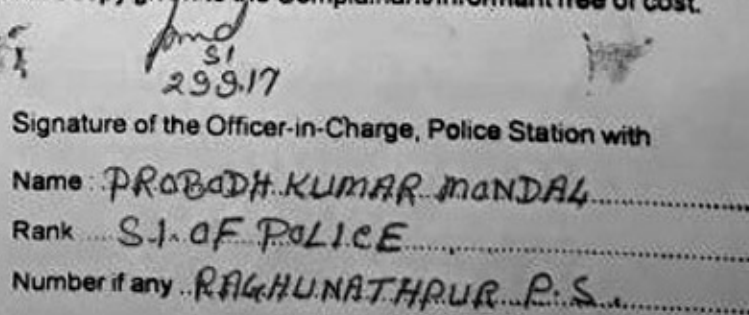 Complainant/Informant free of cost.
SI
29.9.17
Signature of the Officer-in-Charge, Police Station with
Name : PROBODH KUMAR MONDAL
Rank S.I. OF POLICE
Number if any RAGHUNATHPUR P.S.